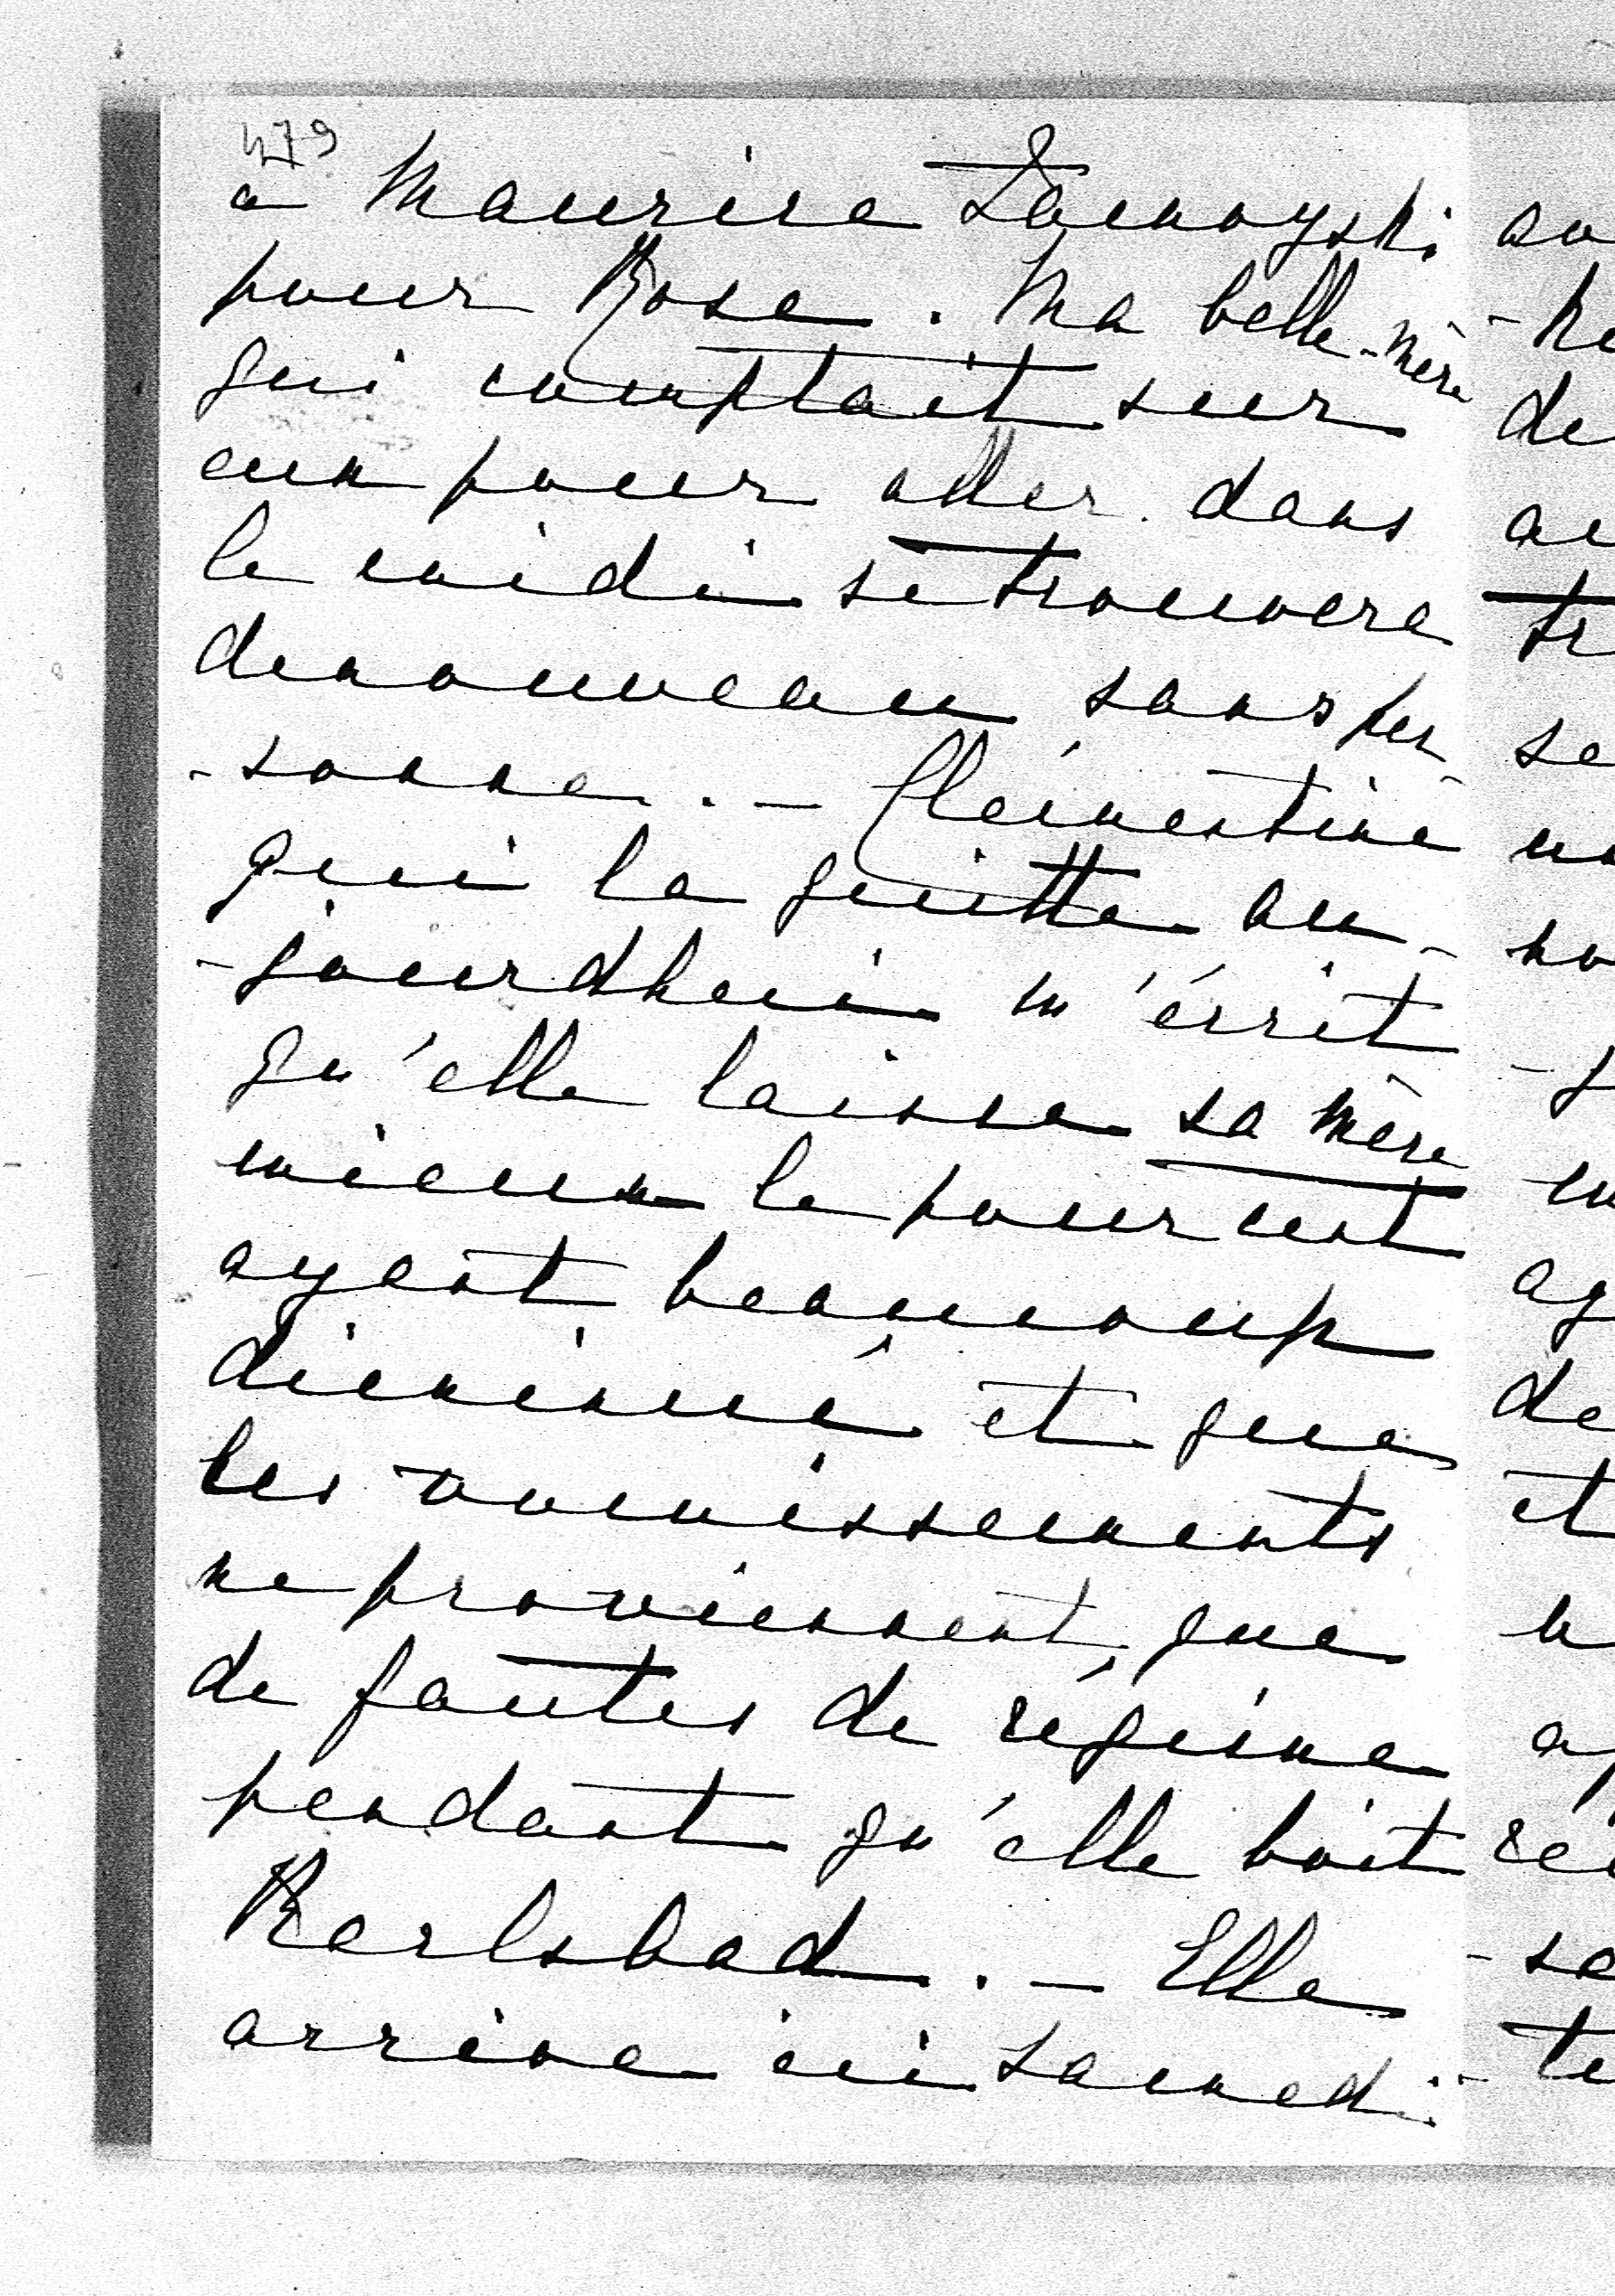 479
a Maurice Zamoyski
pour Rose. Ma belle-mère
qui comptait sur
eux pour aller dans
le midi se trouvera
de nouveau sans per
-sonne. - Clémentine
qui la quitte au-
-jourdhui m'écrit
qu'elle laisse sa mère
mieux le pour cent
ayant beaucoup
diminué et que
les vomissements
ne proviennent que
de fautes de régime
pendant qu'elle boit
Karlsbad. - Elle
arrive ici samedi